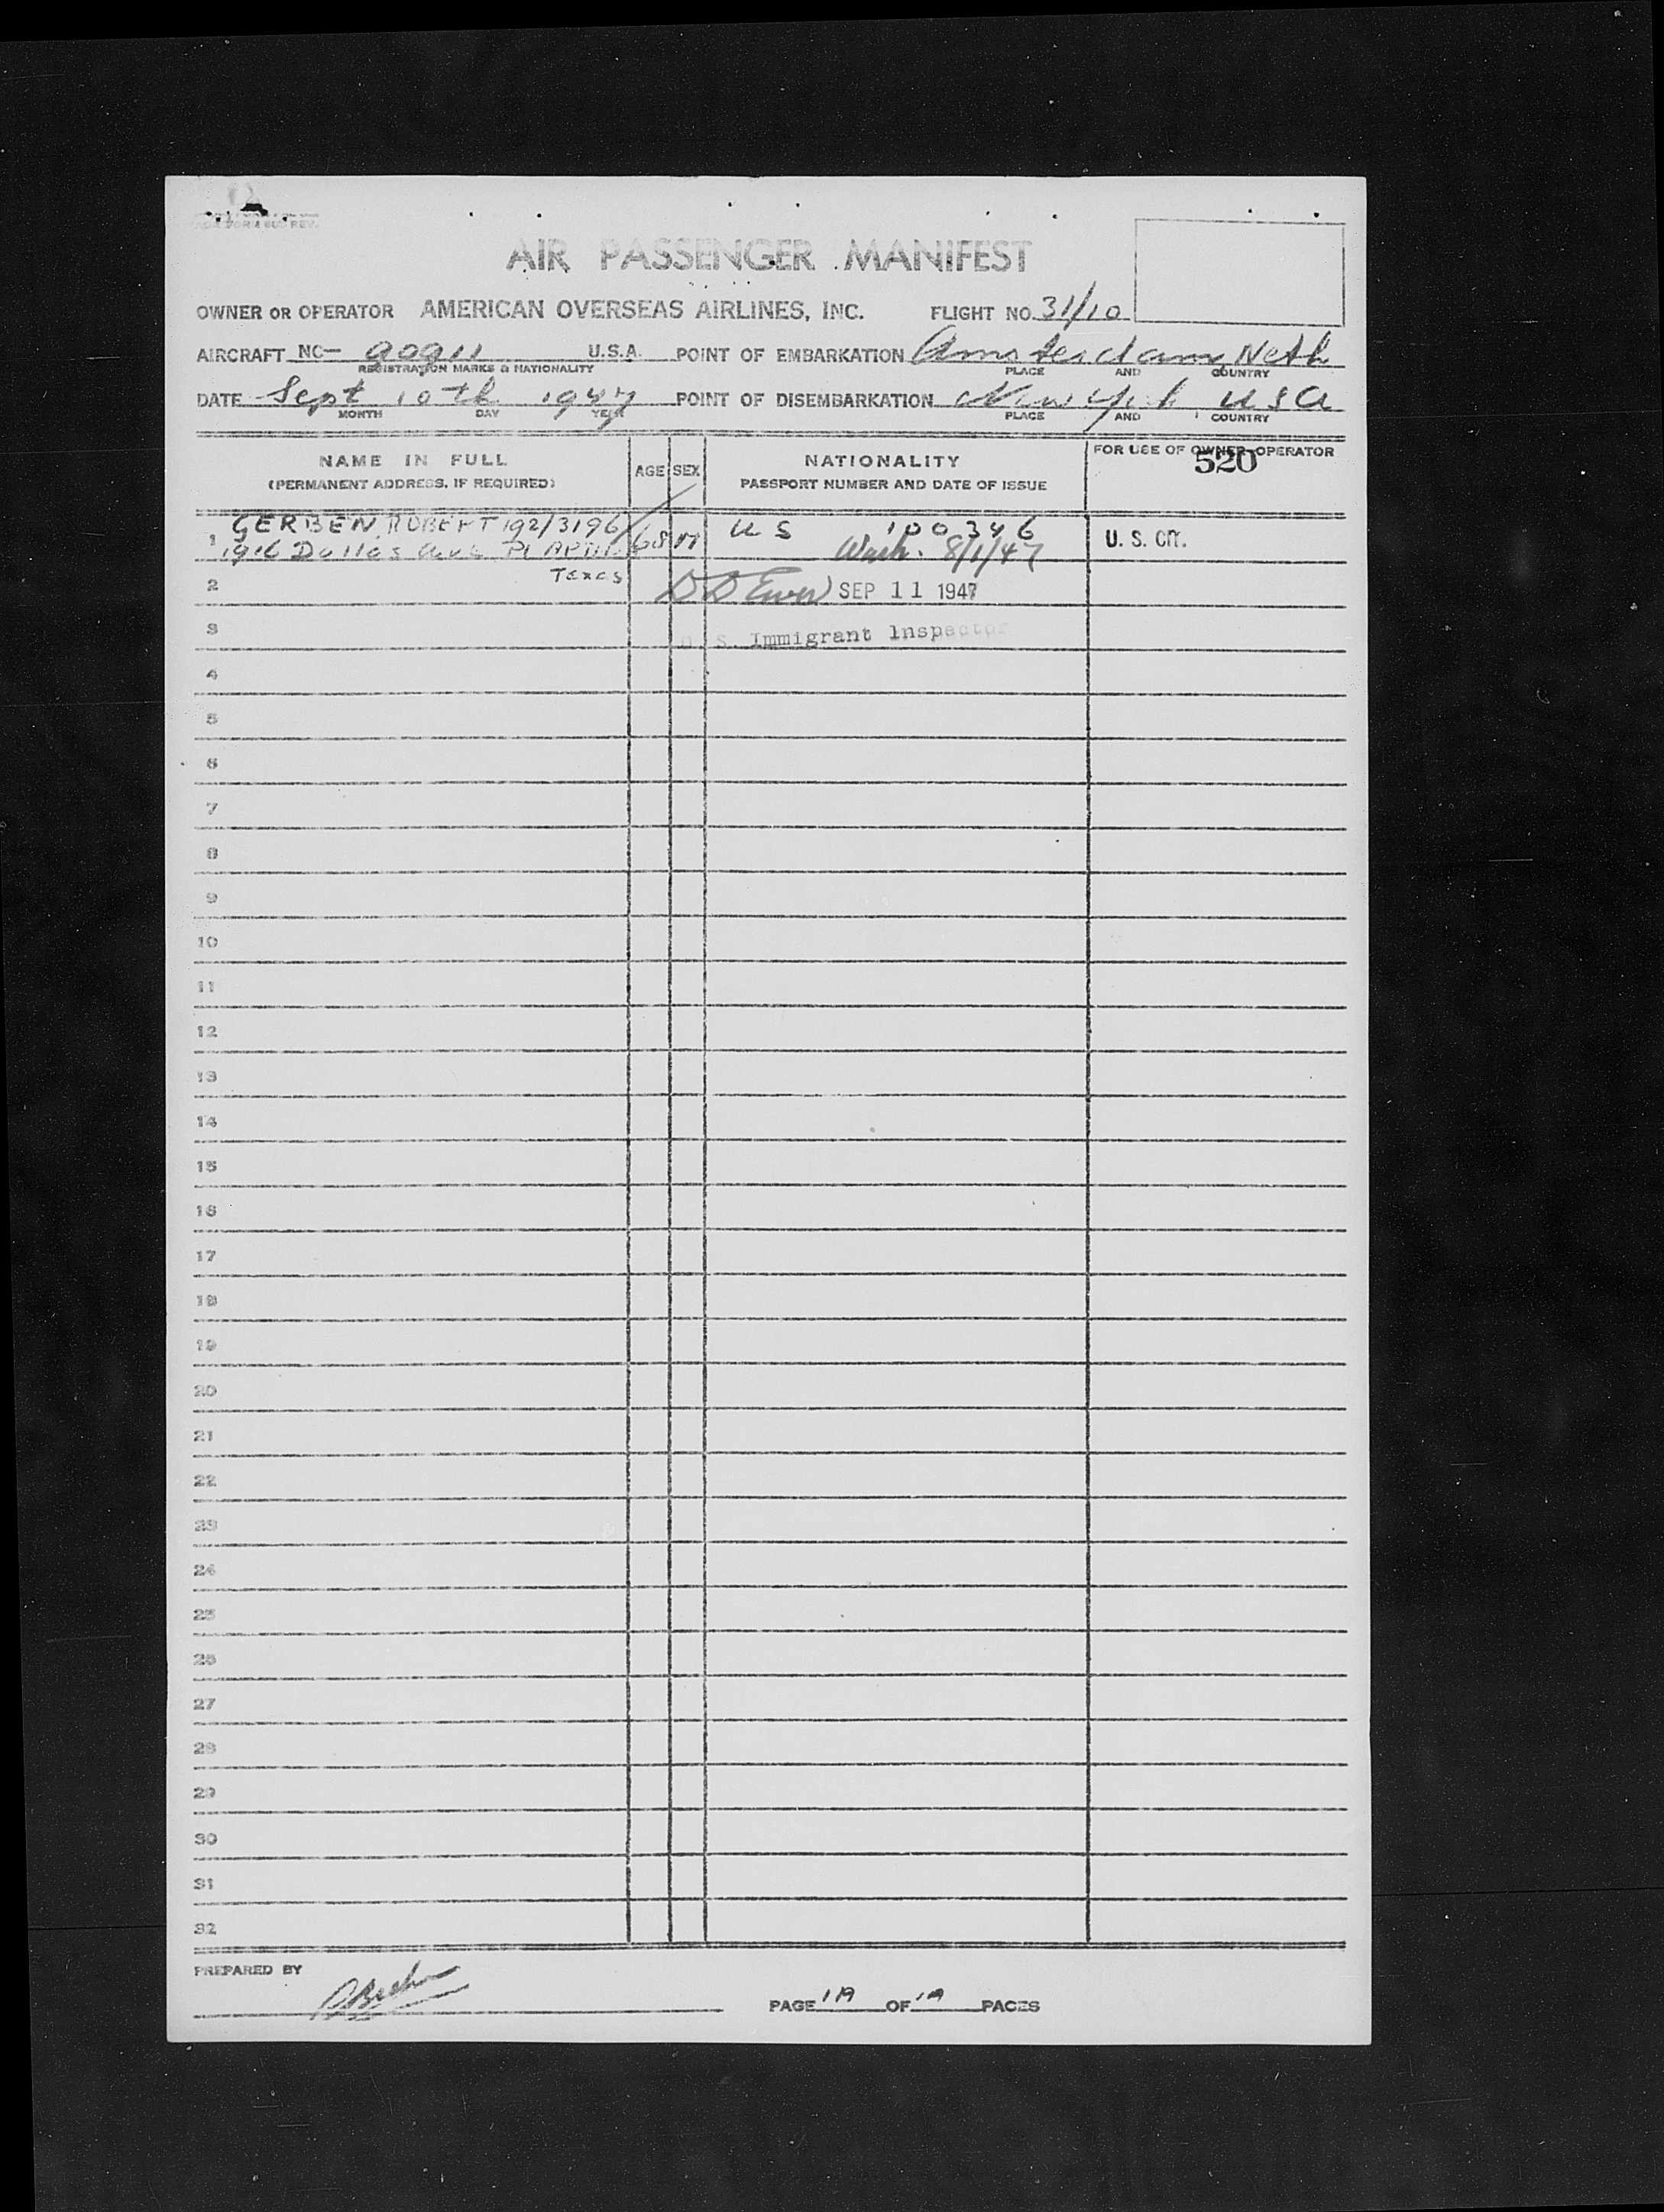 AIR PASSENGER MANIFEST
OWNER OR OPERATOR AMERICAN OVERSEAS AIRLINES, INC. FLIGHT NO. 31/10
AIRCRAFT NC- 90911 U.S.A. POINT OF EMBARKATION Amsterdam, Neth
REGISTRATION MARKS & NATIONALITY PLACE AND COUNTRY
DATE Sept 10th 1947 POINT OF DISEMBARKATION New York USA
MONTH DAY YEAR PLACE AND COUNTRY
NAME IN FULL AGE SEX NATIONALITY FOR USE OF OWNER-OPERATOR
520
(PERMANENT ADDRESS, IF REQUIRED) PASSPORT NUMBER AND DATE OF ISSUE
GERBEN, ROBERT 192/3196 US 100346
1 1916 Dallas ave 68 M Wash. 8/1/47 U. S. CIT.
Texas
2 SEP 11 1947
3 U. S. Immigrant Inspector
4
5
6
7
8
9
10
11
12
13
14
15
16
17
18
19
20
21
22
23
24
25
26
27
28
29
30
31
32
PREPARED BY
PAGE 1A OF 1A PAGES